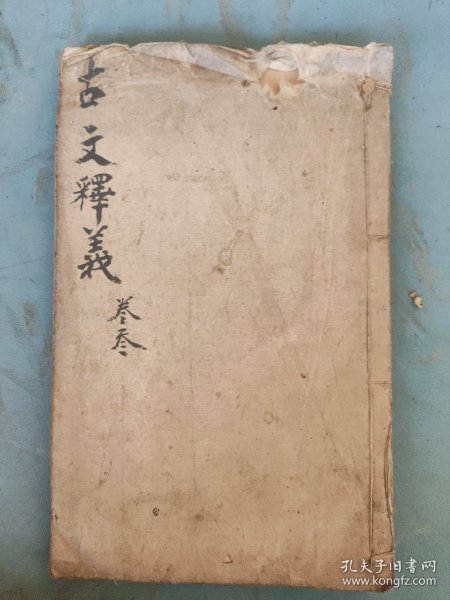 古文釋義
卷叁
孔夫子旧书网
www.kongfz.com